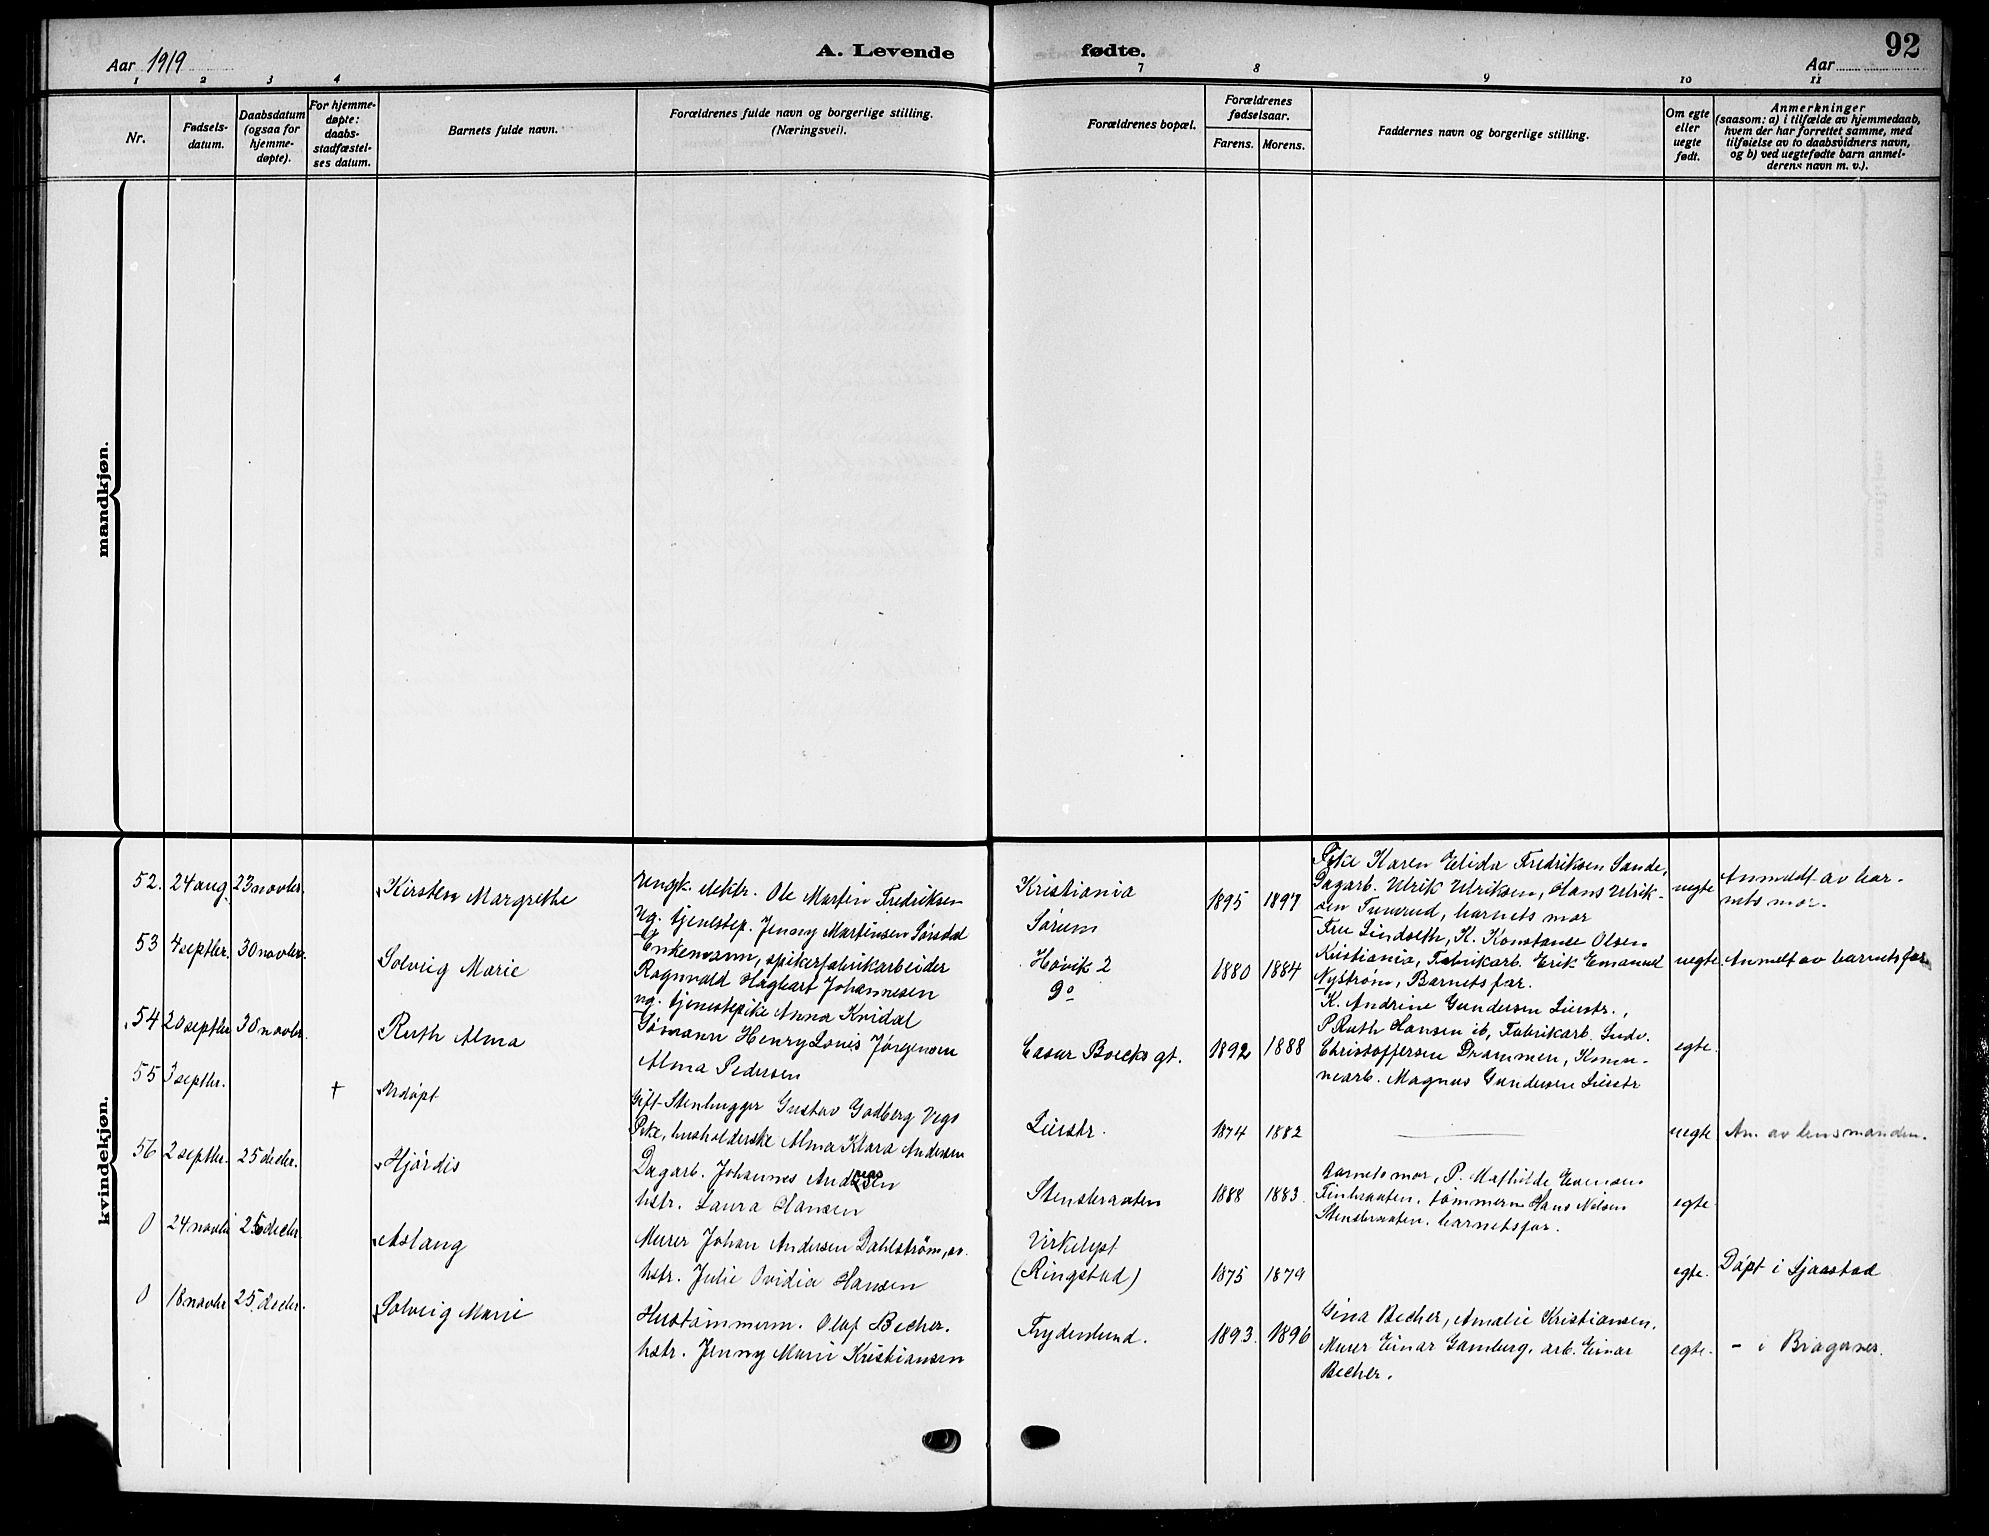 Aar 1919
A. Levende fødte.
92
Aar
1 2 3 4 7 8 9 10 11
Nr.
Fødsels-
datum.
Daabsdatum
(ogsaa for
hjemme-
døpte).
For hjemme-
døpte:
daabs-
stadfæstel-
ses datum.
Barnets fulde navn.
Forældrenes fulde navn og borgerlige stilling.
(Næringsvei).
Forældrenes bopæl.
Forældrenes
fødselsaar.
Farens. Morens.
Faddernes navn og borgerlige stilling.
Om egte
eller
uegte
født.
Anmerkninger
(saasom: a) i tilfælde av hjemmedaab,
hvem der har forrettet samme, med
tilføielse av to daabsvidners navn,
og b) ved uegtefødte barn anmel-
derens navn m. v.).
mandkjøn.
kvindekjøn.
52. 24 aug. 23 novbr. Kirsten Margrethe
Ungk. elektr. Ole Martin Fredriksen
Ug. tjenestep. Jenny Martinsen Sørsdal
Kristiania
Sørum
1895 1897
Karen Elida Fredriksen Sande,
Dagarb. Ulrik Ulriksen, Hans Ulrik-
sen Tuverud, barnets mor
uegte
Anmeldt av bar-
nets mor.
53 4 septbr. 30 novbr. Solveig Marie
Enkemann, spikerfabrikarbeider
Ragnvald Hagbart Johannesen
ug. tjenestepike Anna Kvidal
Høvik 2
do
1880 1884
Fru Lindseth, K. Konstanse Olsen
Kristiania, Fabrikarb. Erik Emanuel
Nystrøm, Barnets far.
uegte Anmeldt av barnets far.
54 20 septbr 30 novbr. Ruth Alma
Sømann Henry Louis Jørgensen
Alma Pedersen
Casur Boecks gt.
1892 1888
K. Andrine Gundersen Lierstr.,
P. Ruth Hansen ib, Fabrikarb. Ludv.
Christoffersen Drammen, Kom-
nearb. Magnus Gundersen Lierstr
egte.
55 3 septbr. † Udøpt
Gift Stenhugger Gustav Godberg Vegs
Pike, husholderske Alma Klara Andersen
Lierstr.
1874 1882
uegte An. av lensmanden.
56 2 septbr. 25 decbr. Hjørdis
Dagarb. Johannes Andersen
hstr. Laura Hansen
Stensbraaten
1888 1883
Barnets mor, P. Mathilde Evensen
tømmerm Hans Nilsen
Stensbraaten, barnets far.
egte.
0 24 novbr 25 decbr Aslaug
Murer Johan Andersen Dahlstrøm, ov.
hstr. Julie Ovidia Hansen
Virkelyst
(Ringstad)
1875 1879
egte. Døpt i Sjaastad
0 18 novbr 25. decbr. Solveig Marie
Hustømmerm. Olaf Becher.
hstr. Jenny Marie Kristiansen
Frydenlund.
1893. 1896
Gina Becher, Amalie Kristiansen.
Murer Einar Gamborg, arb. Einar
Becher.
egte. - i Bragernes.